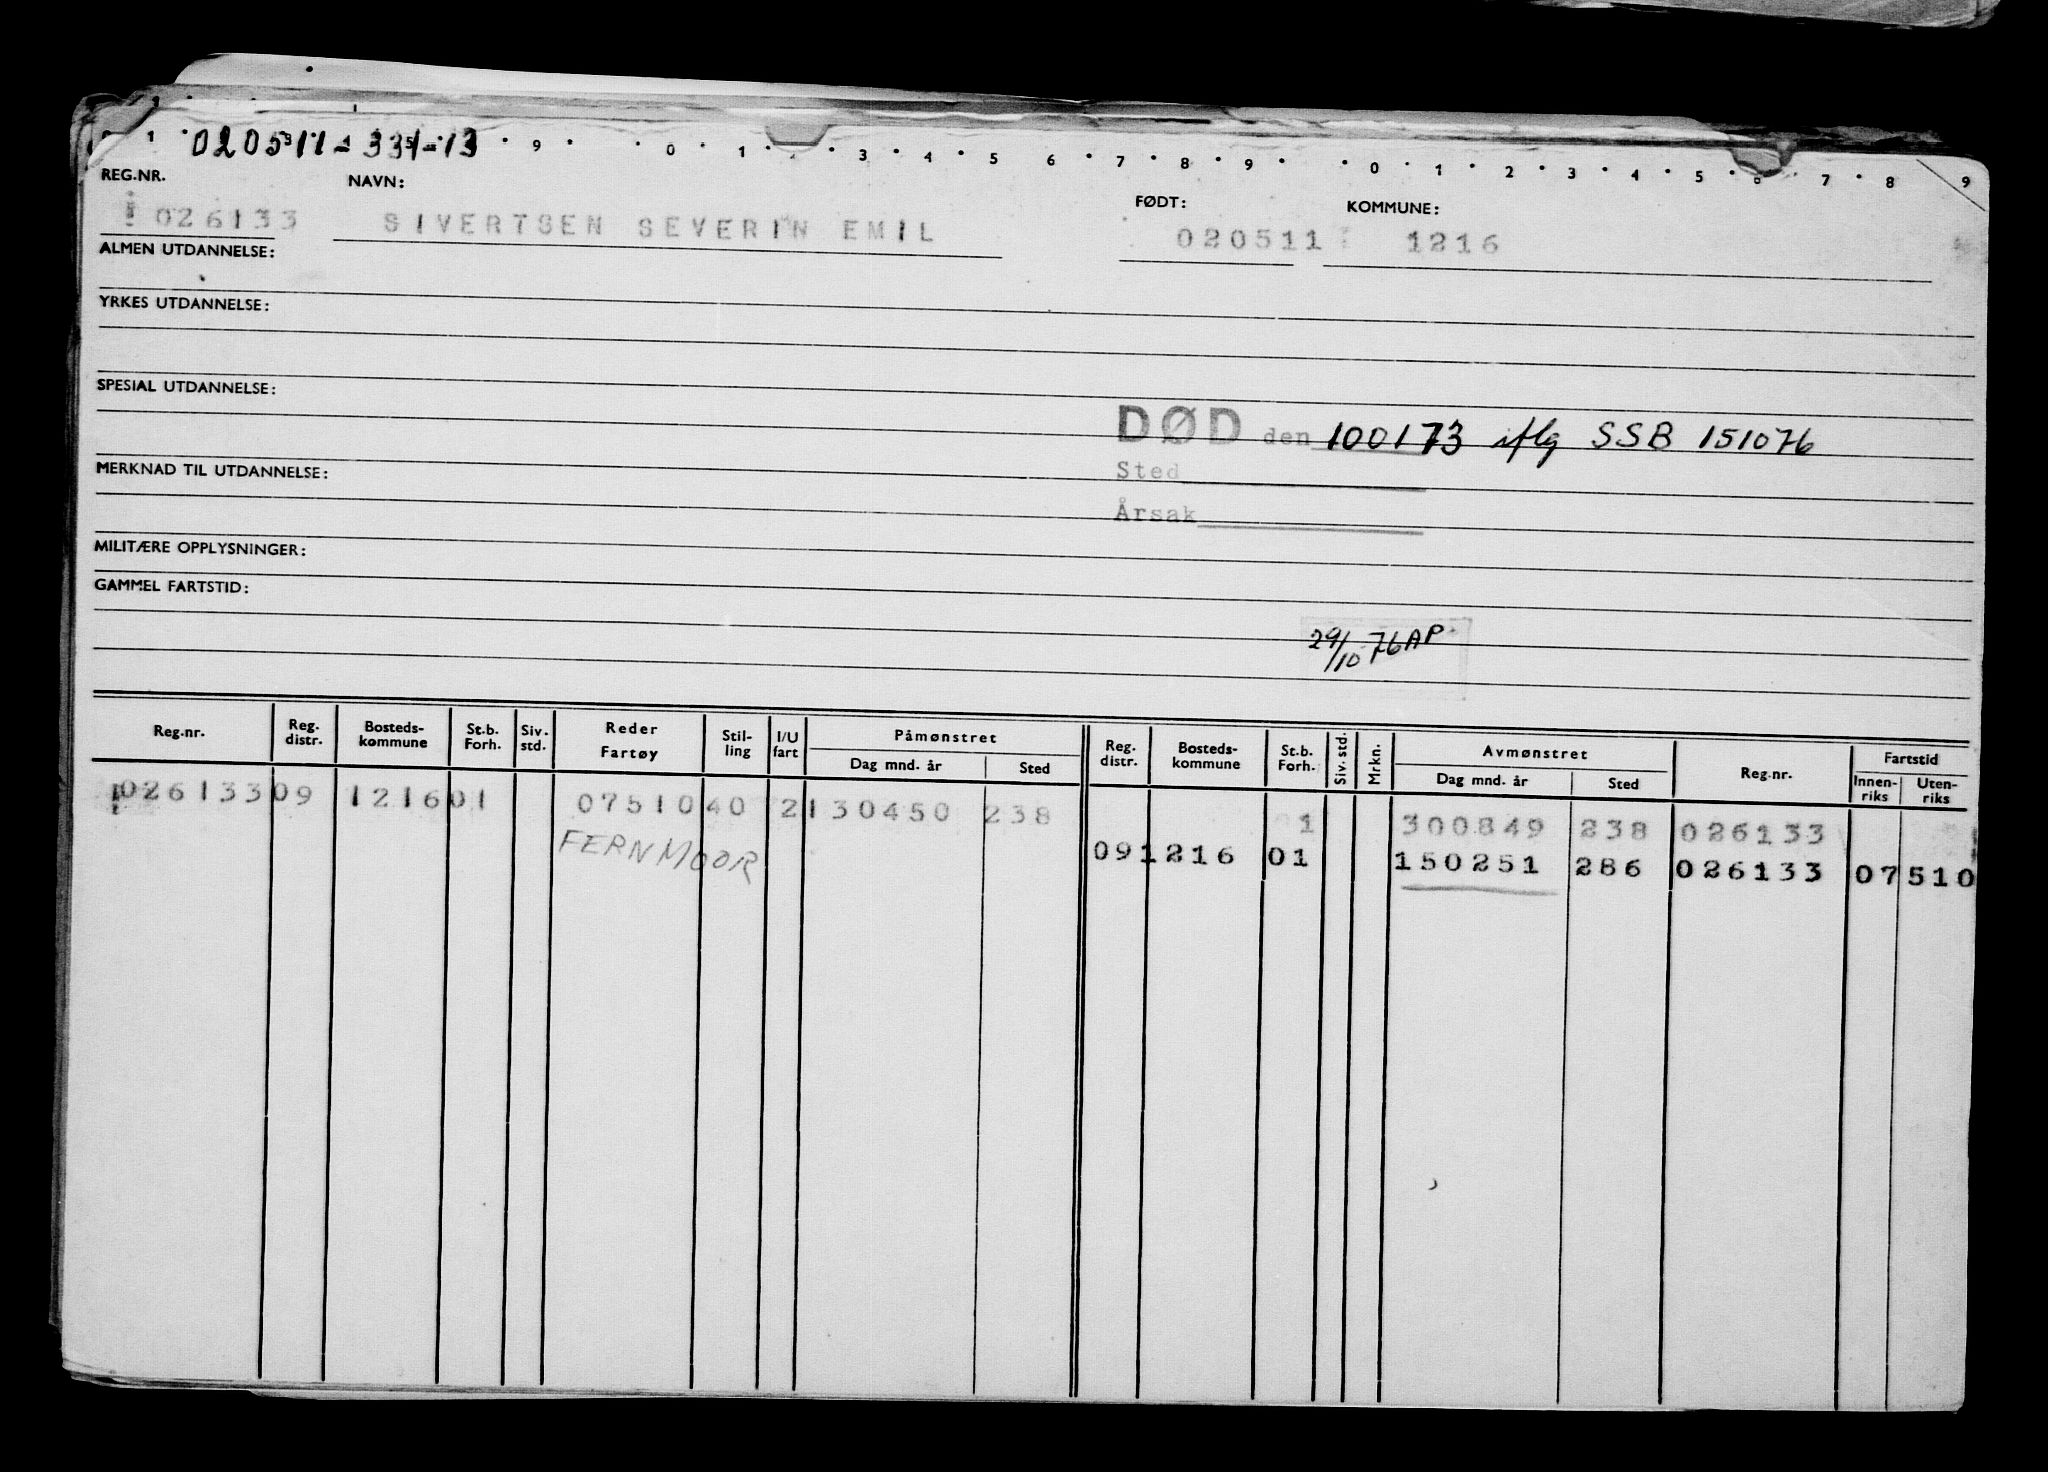 020511-331-13
1 9 0 1 3 4 5 6 7 8 9 0 1 2 3 4 5 6 7 8 9
REG.NR. NAVN: FØDT: KOMMUNE:
026133 SIVERTSEN SEVERIN EMIL 020511 1216
ALMEN UTDANNELSE:
YRKES UTDANNELSE:
SPESIAL UTDANNELSE:
DØD den 100173 iflg SSB 151076
MERKNAD TIL UTDANNELSE:
Sted
Årsak
MILITÆRE OPPLYSNINGER:
GAMMEL FARTSTID:
29/10 76 AP
Reg.nr. Reg. distr. Bosteds-kommune St.b. Forh. Siv. std. Reder Fartøy Stil-ling I/U fart Påmønstret Dag mnd. år Sted Reg. distr. Bosteds-kommune St.b. Forh. Siv. std. Mrkn. Avmønstret Dag mnd. år Sted Reg.nr. Fartstid Innen-riks Uten-riks
026133 09 1216 01 07510 40 2 130450 238 1 300849 238 026133
FERNMOOR 09 1216 01 150251 286 026133 07510